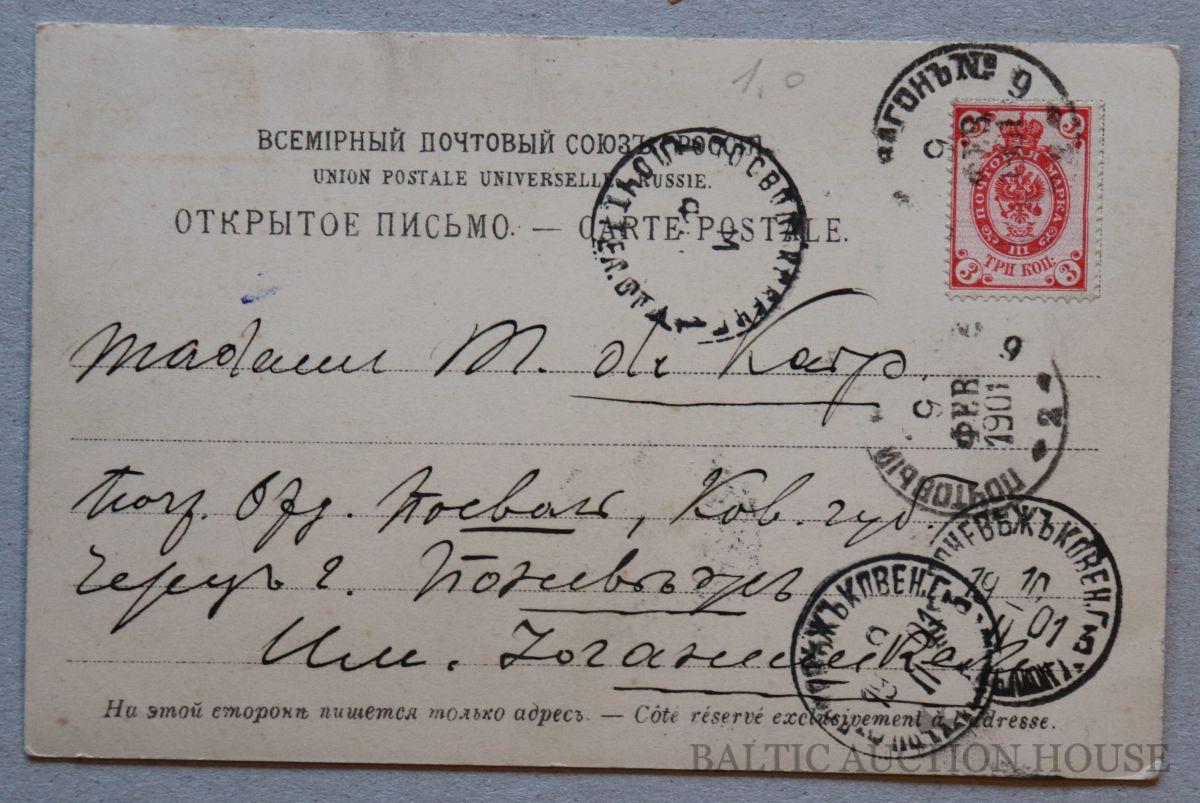 1,0
ВСЕМІРНЫЙ ПОЧТОВЫЙ СОЮЗЪ. РОССІЯ.
UNION POSTALE UNIVERSELLE. RUSSIE.
ОТКРЫТОЕ ПИСЬМО. — CARTE POSTALE.
ВАГОНЪ № 9
9
ПОЧТОВАЯ МАРКА
III
ТРИ КОП.
3 3 3
Madame M. de Karp.
9
ФЕВ
1901
9
2
ПОЧТОВЫЙ
Почт. Отд. Посволь, Ков. губ.
Черезъ г. Поневѣжъ
Им. Іоганишкели
ПОНЕВѢЖЪ КОВЕН. Г.
19 10 01
II
ПОНЕВѢЖЪ КОВЕН. Г.
19 9 01
II
На этой сторонѣ пишется только адресъ. — Côté réservé exclusivement à l'adresse.
BALTIC AUCTION HOUSE